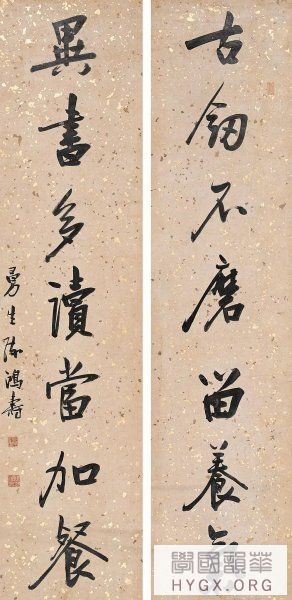 古釼不磨留養氣
異書多讀當加餐
曼生陳鴻壽
華韻國學
HYGX.ORG